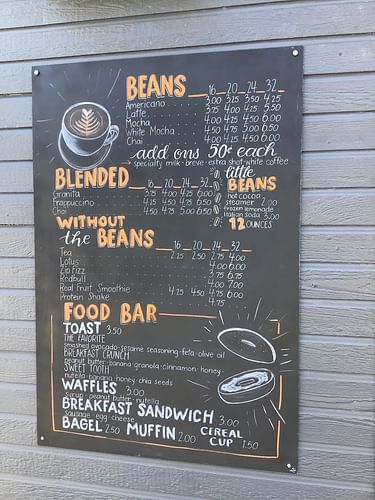 BEANS 16 20 24 32
Americano 3.00 3.25 3.50 4.25
Latte 3.75 4.00 4.25 5.50
Mocha 4.00 4.25 4.50 6.00
White Mocha 4.50 4.75 5.00 6.50
Chai 4.50 4.75 5.00 6.50
add ons 50¢ each
specialty milk · breve · extra shot · white coffee
BLENDED 16 20 24 32
Granita 3.75 4.00 4.25 6.00
Frappuccino 4.25 4.50 4.75 6.00
Chai 4.50 4.75 5.00 6.50
little
BEANS
hot cocoa
steamer 2.00
frozen lemonade
italian soda 3.00
12 OUNCES
WITHOUT
the BEANS
16 20 24 32
Tea 2.25 2.50 2.75
Lotus 4.00 6.00
Zip Fizz 4.00
Redbull 4.00 7.00
Real Fruit Smoothie 4.25 4.50 4.75 6.00
Protein Shake 4.75
FOOD BAR
TOAST 3.50
THE FAVORITE
smashed avocado · sesame seasoning · feta · olive oil
BREAKFAST CRUNCH
peanut butter · banana · granola · cinnamon · honey
SWEET TOOTH
nutella · banana · honey · chia seeds
WAFFLES 3.00
syrup · peanut butter · nutella
BREAKFAST SANDWICH 3.00
sausage · egg · cheese
BAGEL 2.50 MUFFIN 2.00 CEREAL CUP 1.50